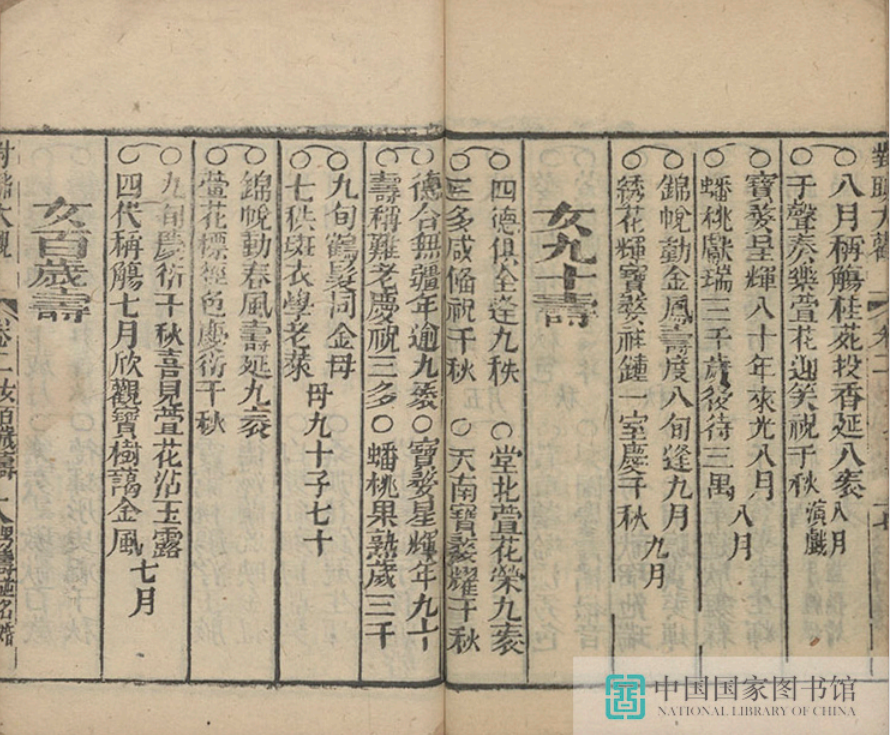 八月稱觴桂苑投香延八袠 八月
千聲奏樂萱花迎笑祝千秋 演戲
寶婺呈輝八十年來光八月
蟠桃獻瑞三千歲後待三萬 八月
錦帨動金風壽度八旬逢九月
綉花輝寶婺祥鍾一室慶千秋 九月
女九十壽
四德俱全逢九秩 堂北萱花榮九袠
三多咸偹祝千秋 天南寶婺耀千秋
德合無疆年逾九袠 寶婺星輝年九十
壽稱難老慶祝三多 蟠桃果熟歲三千
九旬鶴髮同金母
七秩斑衣學老萊 母九十子七十
錦帨動春風壽延九袠
萱花標徑色慶衍千秋
九旬慶衍千秋喜見萱花沾玉露
四代稱觴七月欣觀寶樹藹金風 七月
女百歲壽
卷二 女百歲壽
中国国家图书馆
NATIONAL LIBRARY OF CHINA